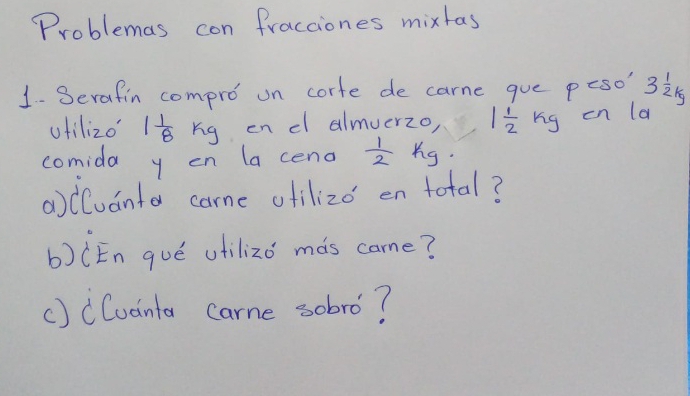 Problemas con fracciones mixtas
1.- Serafín compró un corte de carne que pesó 3 1/2 kg
utilizó 1 1/8 kg en el almuerzo, 1 1/2 kg en la
comida y en la cena 1/2 kg.
a) ¿Cuánta carne utilizó en total?
b) ¿En qué utilizó más carne?
c) ¿Cuánta carne sobró?